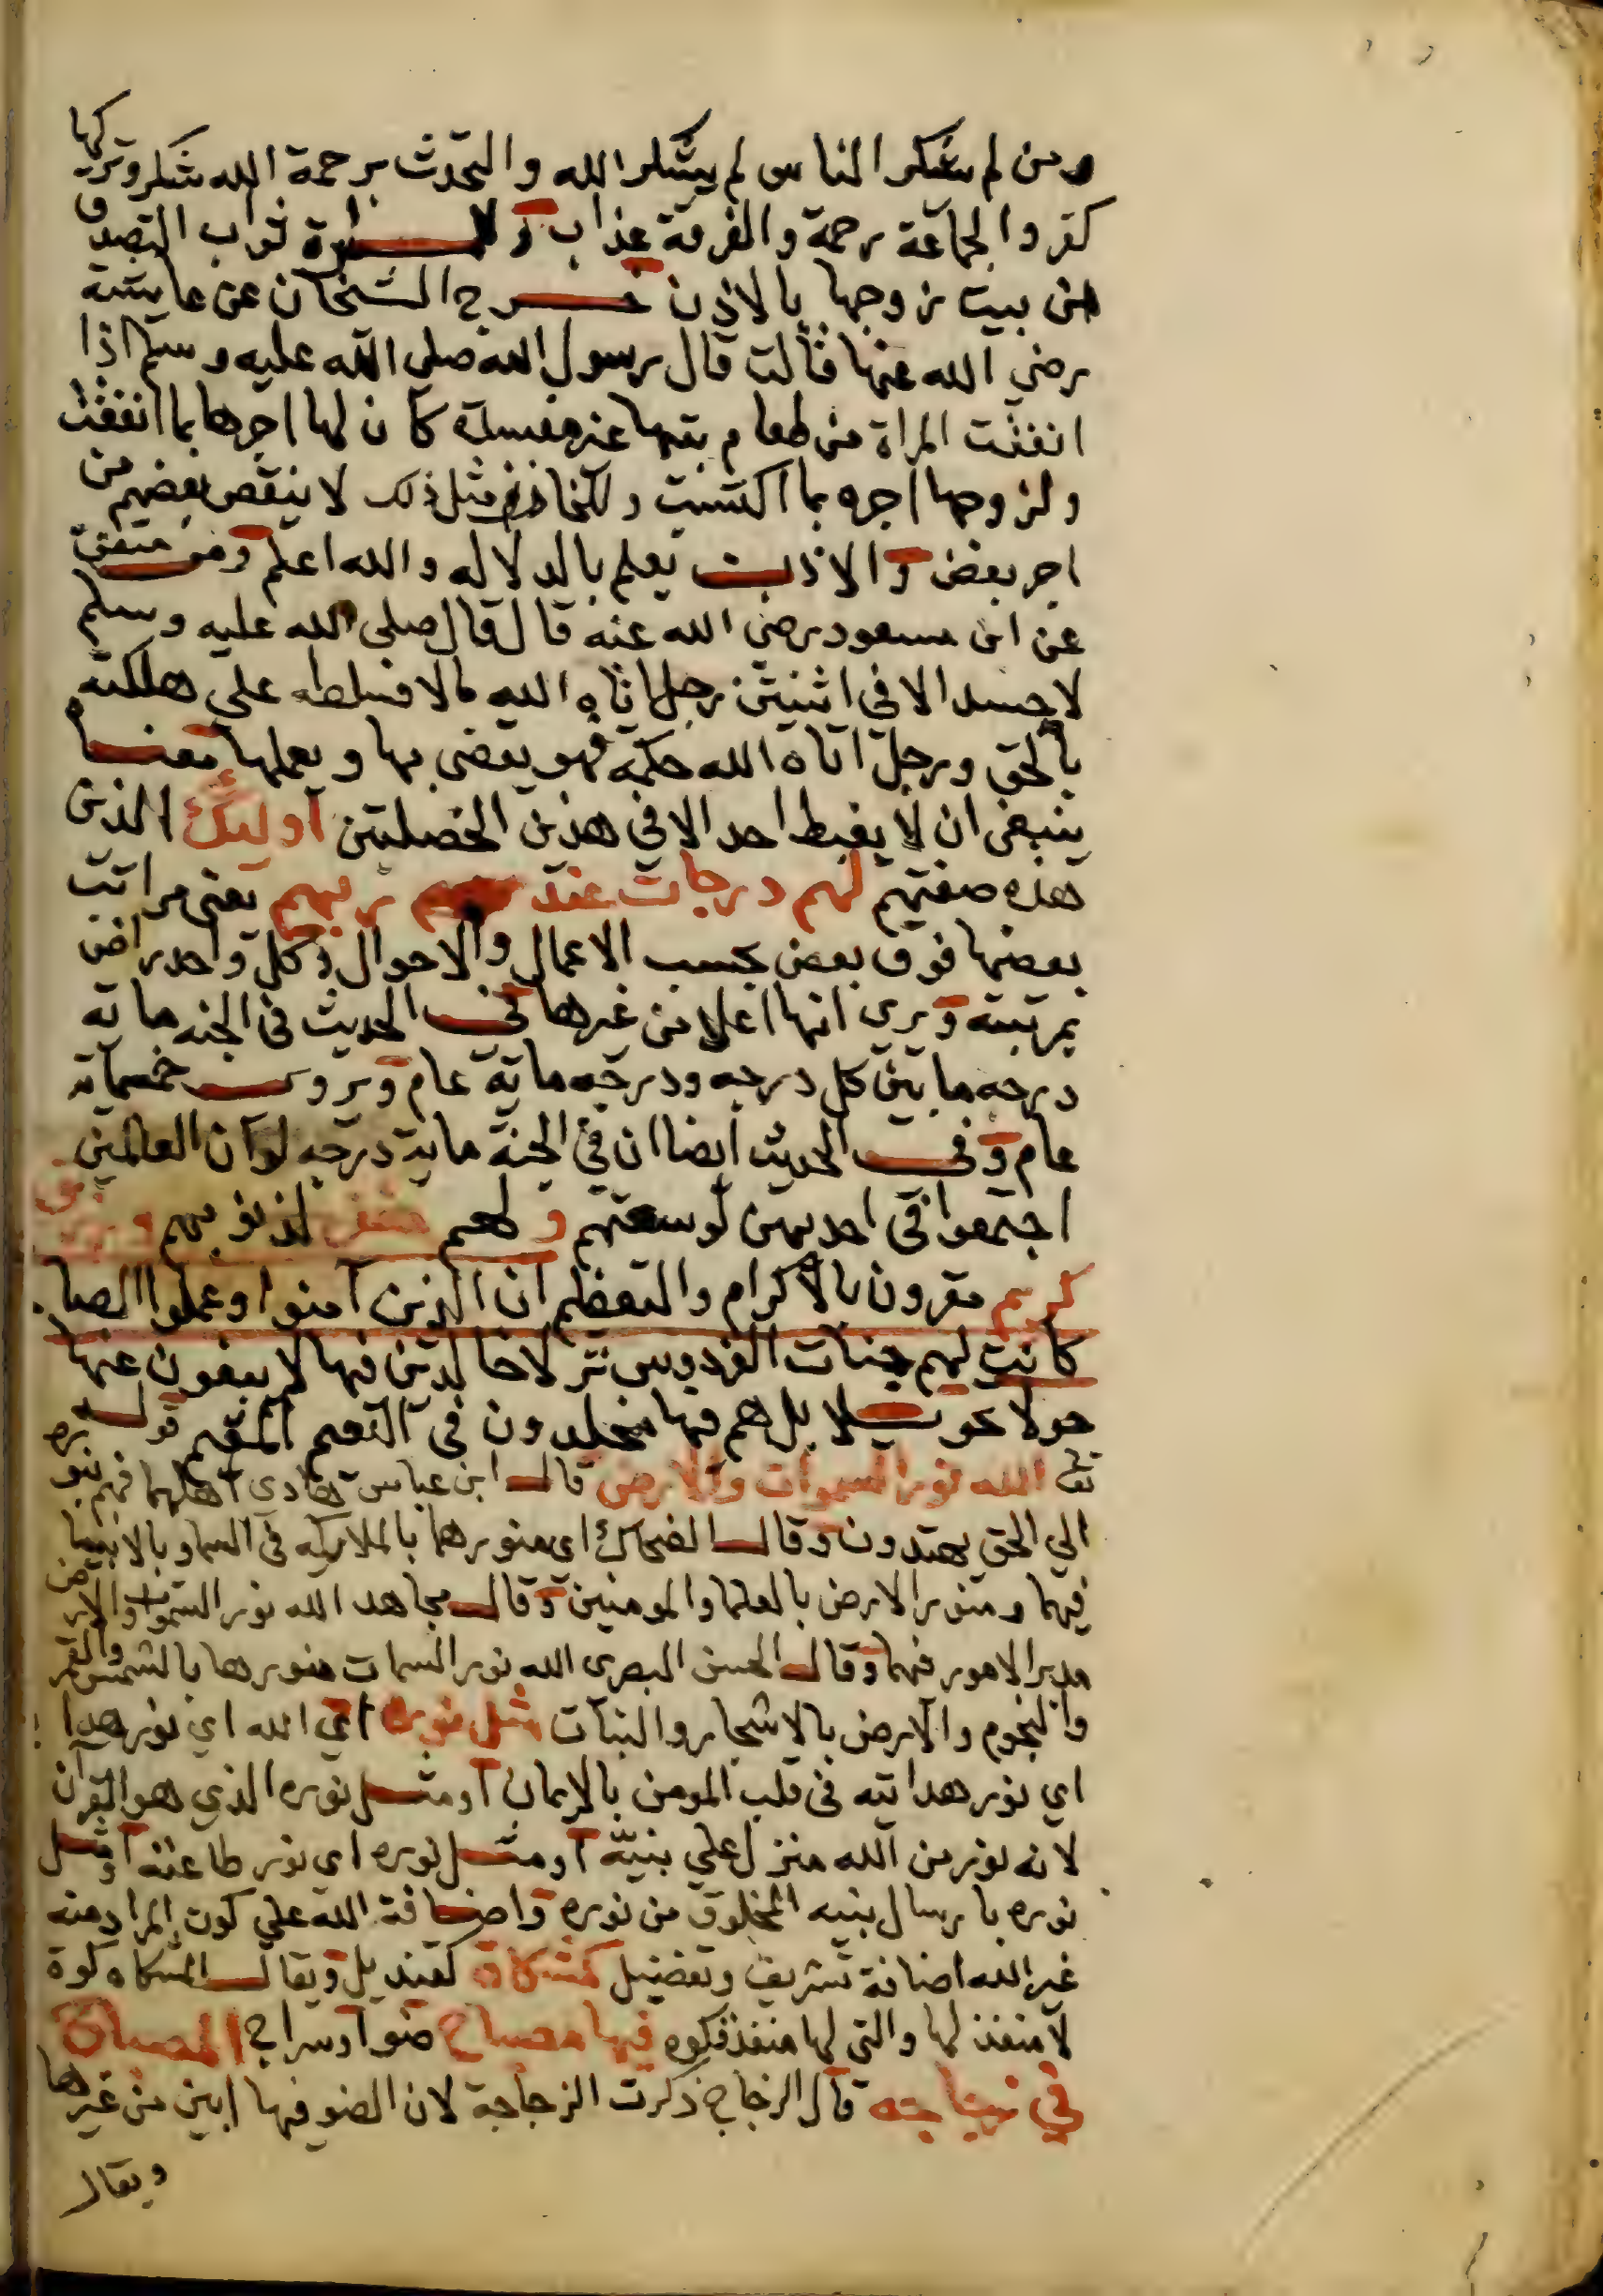 ومن لم يشكر الناس لم يشكر الله والتحدث برحمة الله شكر وتركها
كفر والجماعة رحمة والفرقة عذاب و للمراة ثواب التصدق
من بيت زوجها بالاذن خرج الشيخان عن عايشة
رضي الله عنها قالت قال رسول الله صلى الله عليه وسلم اذا
انفقت المراة من طعام بيتها غير مفسدة كان لها اجرها بما انفقت
ولزوجها اجره بما اكتسبت وللخازن مثل ذلك لا ينقص بعضهم من
اجر بعض والاذن يعلم بالدلاله والله اعلم ومن متفق
عن ابن مسعود رضي الله عنه قال قال صلى الله عليه وسلم
لاحسد الا في اثنتين رجل اتاه الله مالا فسلطه علي هلكته
بالحق ورجل اتاه الله حكمة فهو يقضي بها ويعلمها معناه
ينبغي ان لا يغبط احد الا في هذين الخصلتين اوليك الذين
هذه صفتهم لهم درجات عند ربهم يعني مراتب
بعضها فوق بعض بحسب الاعمال والاحوال وكل واحد راض
بمرتبته ويري انها اعلا من غيرها في الحديث في الجنه ماية
درجه ما بين كل درجه ودرجه ماية عام ويروي خمسماية
عام وفي الحديث ايضا ان في الجنة ماية درجه لو ان العالمين
اجتمعوا في احديهن لوسعتهم ولهم مغفرة لذنوبهم ورزق
كريم مقرون بالاكرام والتعظيم ان الذين امنوا وعملوا الصا
كانت لهم جنات الفردوس نزلا خالدين فيها لا يبغون عنها
حولا تحويلا بل هم فيها مخلدون في النعيم المقيم قوله
تعا الله نور السموات والارض قال ابن عباس هادي اهلهما فهم بنوره
الي الحق يهتدون وقال الضحاك اي منورهما بالملايكه في السما وبالانبيا
فيها ومنور الارض بالعلما والمومنين وقال مجاهد الله نور السموات والارض
مدبر الامور فيهما وقال الحسن البصري الله نور السمات منورها بالشمس والقمر
والنجوم والارض بالاشجار والنبات مثل نوره اي الله اي نور هدا
اي نور هدايته في قلب المومن بالايمان او مثل نوره الذي هو القرآن
لانه نور من الله منزل علي نبيه او مثل نوره اي نور طاعته او مثل
نوره بارسال نبيه المخلوق من نوره واضافة الله علي كون المراد منه
غير الله اضافة تشريف وتفضيل كمشكاة كقنديل ويقال المشكاه كوة
لا منفذ لها والتي لها منفذ فكوه فيها مصباح ضوا وسراج المصباح
في زجاجة قال الزجاج ذكرت الزجاجة لان الضو فيها ابين من غيرها
ويقال